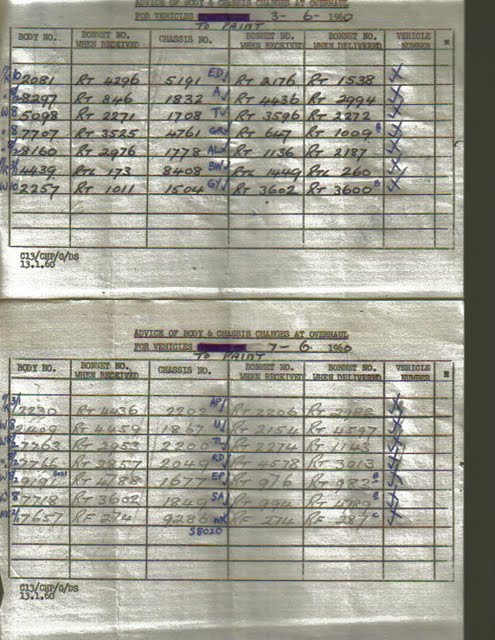 ADVICE OF BODY & CHASSIS CHANGES AT OVERHAUL
FOR VEHICLES 3-6-1960
TO PAINT
BODY NO. BONNET NO. WHEN RECEIVED CHASSIS NO. BONNET NO. WHEN RECEIVED BONNET NO. WHEN DELIVERED VEHICLE NUMBER
2081 RT 4296 5191 ED RT 2176 RT 1538
8297 RT 846 1832 A RT 4436 RT 2994
W8 5098 RT 2271 1708 TV RT 3596 RT 2272
8 7707 RT 3525 4761 GR RT 647 RT 1009 B
8160 RT 2976 1778 AL RT 1136 RT 2187
4439 RTL 173 8408 BW RTL 1449 RTL 260
2257 RT 1011 1504 GY RT 3602 RT 3600 B
C13/CHP/G/DS
13.1.60
ADVICE OF BODY & CHASSIS CHANGES AT OVERHAUL
FOR VEHICLES 7-6 1960
TO PAINT
BODY NO. BONNET NO. WHEN RECEIVED CHASSIS NO. BONNET NO. WHEN RECEIVED BONNET NO. WHEN DELIVERED VEHICLE NUMBER
2230 RT 4436 2202 AP RT 2206
RT 4459 1867 N RT 2154 RT 4597
TL RT 2274 RT 1143
RT 2857 2049 RD RT 4578 RT 3013
RT 4188 1677 EP RT 976 RT 982 B
W8 7718 RT 3602 SA B
7657 RF 274 WR RF 274 RF 287 C
58020
C13/CHP/G/DS
13.1.60